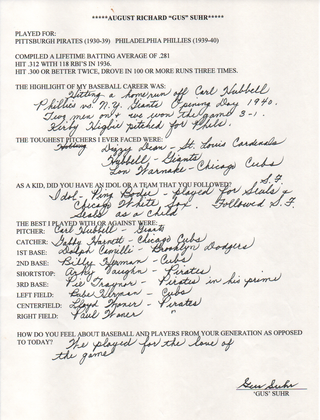 *****AUGUST RICHARD "GUS" SUHR*****
PLAYED FOR:
PITTSBURGH PIRATES (1930-39) PHILADELPHIA PHILLIES (1939-40)
COMPILED A LIFETIME BATTING AVERAGE OF .281
HIT .312 WITH 118 RBI'S IN 1936.
HIT .300 OR BETTER TWICE, DROVE IN 100 OR MORE RUNS THREE TIMES.
THE HIGHLIGHT OF MY BASEBALL CAREER WAS:
Hitting a home run off Carl Hubbell
Phillies vs. N.Y. Giants Opening Day 1940.
Two men on & we won the game 3-1.
Kirby Higbe pitched for Phils.
THE TOUGHEST PITCHERS I EVER FACED WERE:
Dizzy Dean - St. Louis Cardinals
Hubbell - Giants
Lon Warneke - Chicago Cubs
AS A KID, DID YOU HAVE AN IDOL OR A TEAM THAT YOU FOLLOWED? S.F.
Idol - Ping Bodie - played for Seals &
Chicago White Sox. - Followed S.F.
Seals as a child
THE BEST I PLAYED WITH OR AGAINST WERE:
PITCHER: Carl Hubbell - Giants
CATCHER: Gabby Hartnett - Chicago Cubs
1ST BASE: Dolph Camilli - Brooklyn Dodgers
2ND BASE: Billy Herman - Cubs
SHORTSTOP: Arky Vaughn - Pirates
3RD BASE: Pie Traynor - Pirates in his prime
LEFT FIELD: Babe Herman - Cubs
CENTERFIELD: Lloyd Waner - Pirates
RIGHT FIELD: Paul Waner "
HOW DO YOU FEEL ABOUT BASEBALL AND PLAYERS FROM YOUR GENERATION AS OPPOSED
TO TODAY? The played for the love of
the game
Gus Suhr
"GUS" SUHR